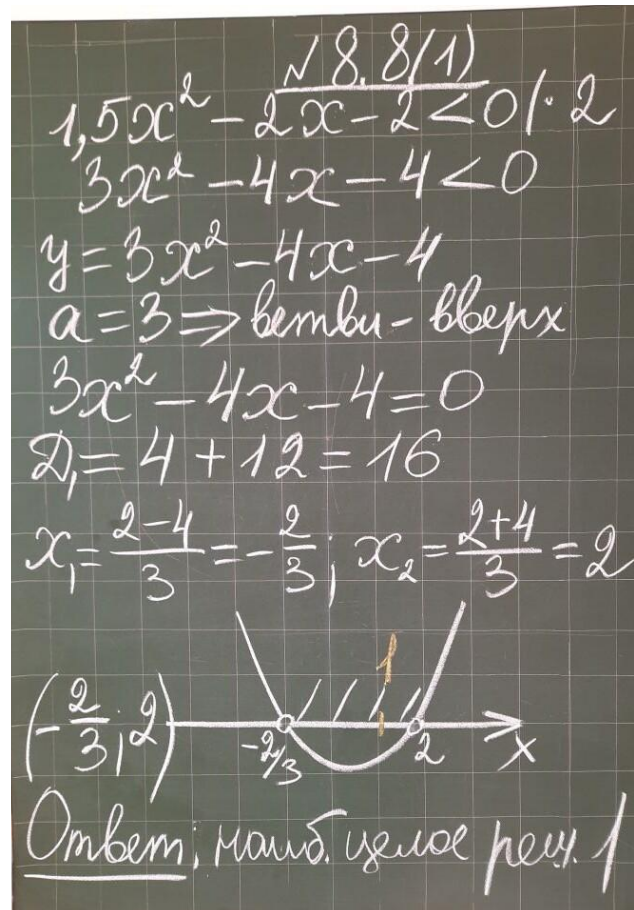 № 8.8(1)
1,5x² - 2x - 2 < 0 | · 2
3x² - 4x - 4 < 0
y = 3x² - 4x - 4
a = 3 ⇒ ветви - вверх
3x² - 4x - 4 = 0
D₁ = 4 + 12 = 16
x₁ = (2-4)/3 = -2/3; x₂ = (2+4)/3 = 2
1
(-2/3; 2) -2/3 2 x
Ответ: наиб. целое реш. 1